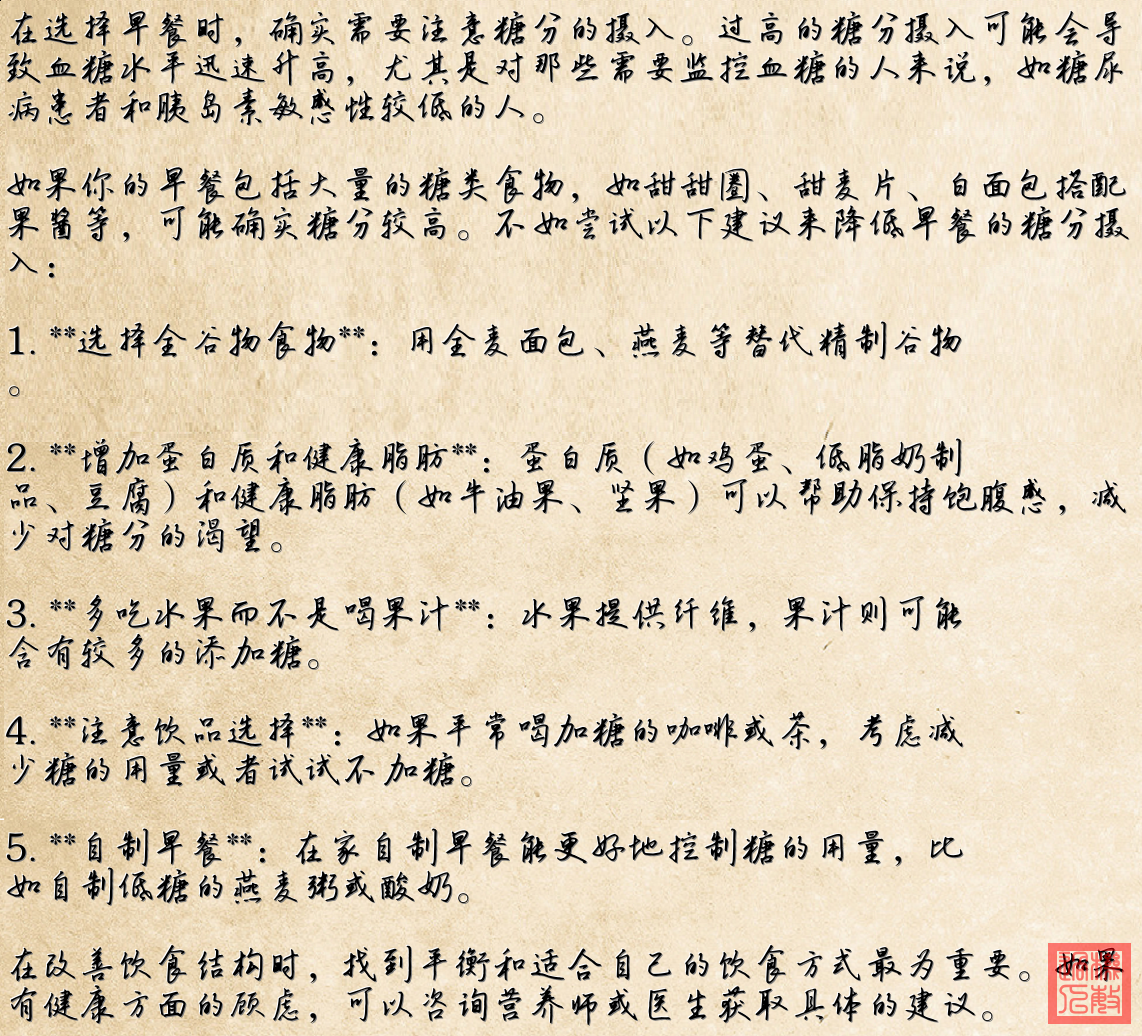 在选择早餐时，确实需要注意糖分的摄入。过高的糖分摄入可能会导
致血糖水平迅速升高，尤其是对那些需要监控血糖的人来说，如糖尿
病患者和胰岛素敏感性较低的人。
如果你的早餐包括大量的糖类食物，如甜甜圈、甜麦片、白面包搭配
果酱等，可能确实糖分较高。不如尝试以下建议来降低早餐的糖分摄
入：
1. **选择全谷物食物**：用全麦面包、燕麦等替代精制谷物
。
2. **增加蛋白质和健康脂肪**：蛋白质（如鸡蛋、低脂奶制
品、豆腐）和健康脂肪（如牛油果、坚果）可以帮助保持饱腹感，减
少对糖分的渴望。
3. **多吃水果而不是喝果汁**：水果提供纤维，果汁则可能
含有较多的添加糖。
4. **注意饮品选择**：如果平常喝加糖的咖啡或茶，考虑减
少糖的用量或者试试不加糖。
5. **自制早餐**：在家自制早餐能更好地控制糖的用量，比
如自制低糖的燕麦粥或酸奶。
在改善饮食结构时，找到平衡和适合自己的饮食方式最为重要。如果
有健康方面的顾虑，可以咨询营养师或医生获取具体的建议。